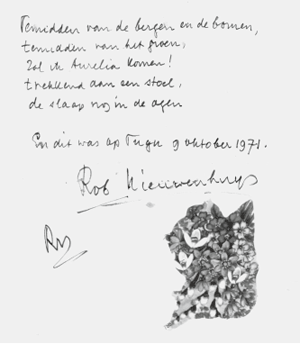 Temidden van de bergen en de bomen,
temidden van het groen,
Zal ik Aurelia komen!
trekkend aan een stoel,
de slaap nog in de ogen
En dit was op Tugu 9 oktober 1971.
Rob Nieuwenhuys